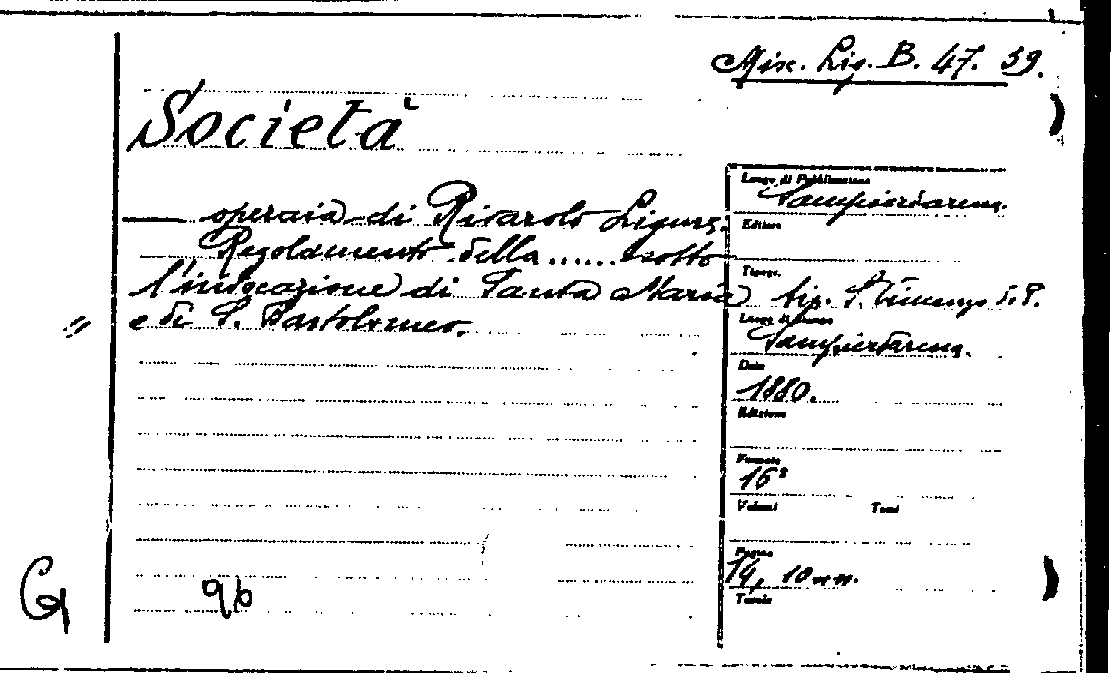 Misc. Lig. B. 47. 39.
Società
— operaia di Rivarolo Ligure.
Regolamento della ...... sotto
l'invocazione di Santa Maria
e di S. Bartolomeo.
Luogo di Pubblicazione
Sampierdarena.
Editore
Tipogr.
tip. S. Vincenzo d. P.
Luogo di Stampa
Sampierdarena.
Data
1880.
Edizione
Formato
16°
Volumi Tomi
Pagine
14, 10 nn.
Tavole
G
96